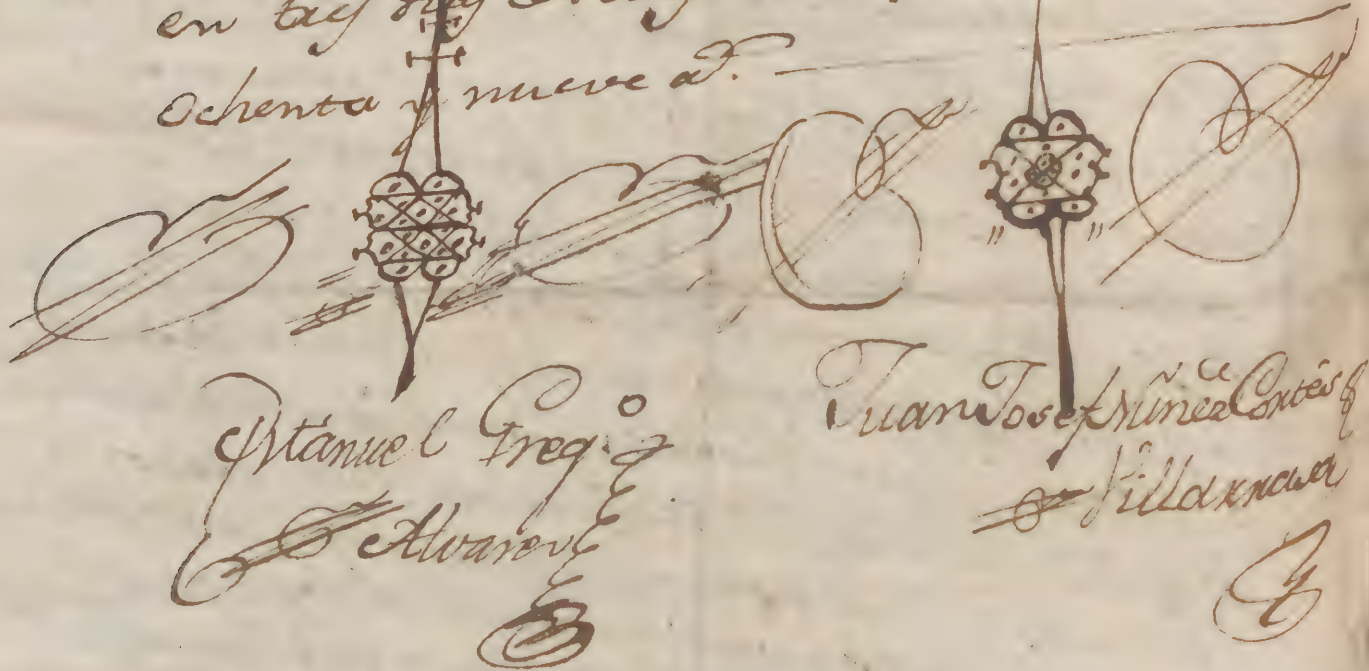 en
ochenta y nueve a.s
Manuel Greg.o
Alvarez
Juan Josef Núñez de Cortés
Villanueva